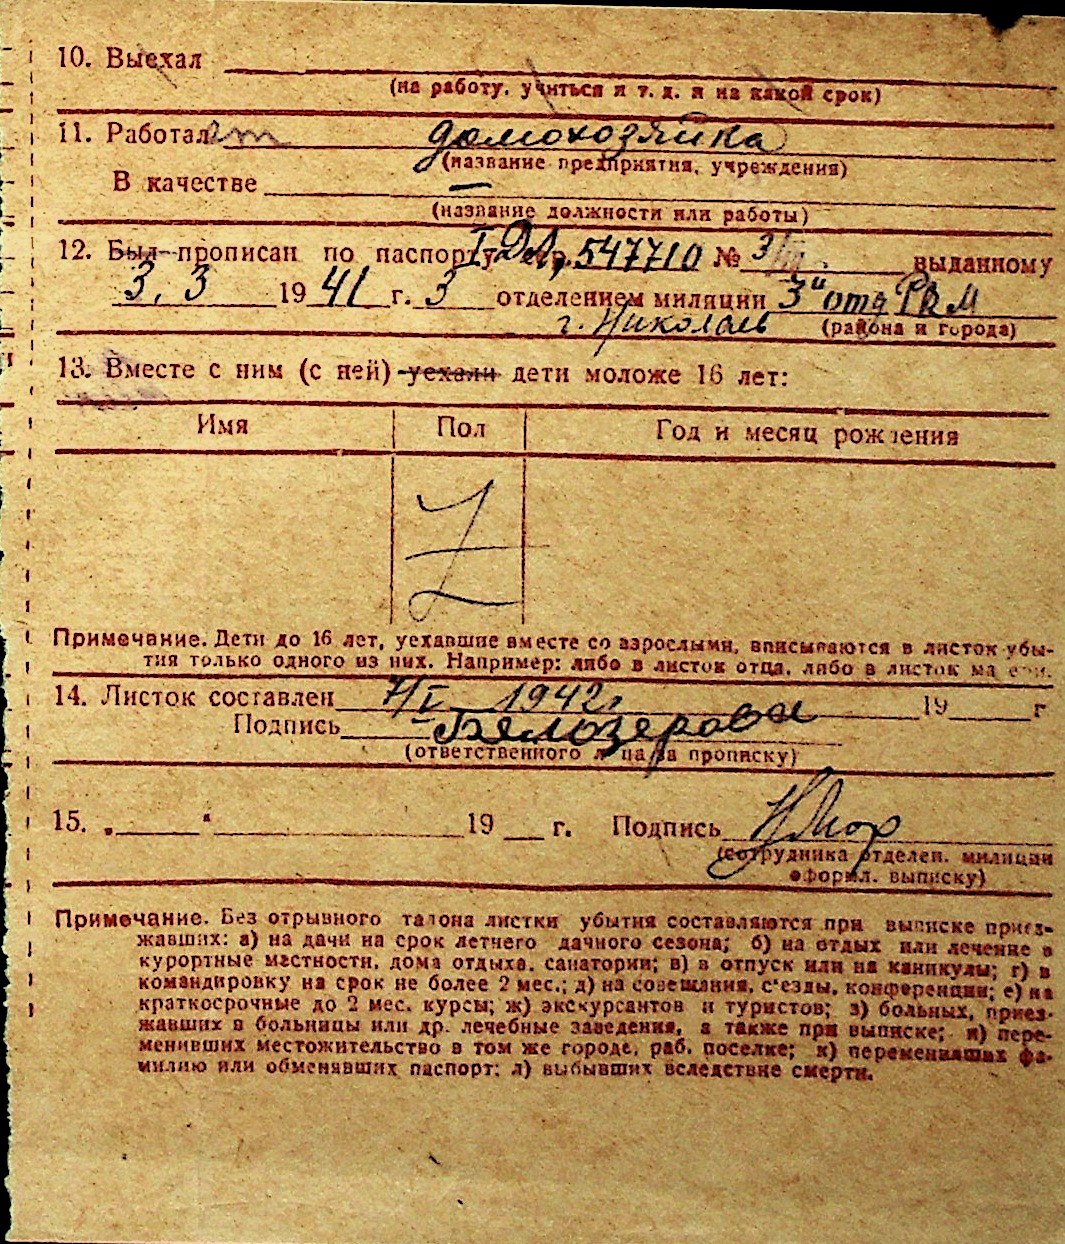 10. Выехал
(на работу, учиться и т. д. и на какой срок)
11. Работает домохозяйка
(название предприятия, учреждения)
В качестве —
(название должности или работы)
12. Был прописан по паспорту 547710 № выданному
3. 3 1941 г. 3 отделением милиции 3" отд РКМ
г. Николаев (района и города)
13. Вместе с ним (с ней) уехали дети моложе 16 лет:
Имя Пол Год и месяц рождения
Z
Примечание. Дети до 16 лет, уехавшие вместе со взрослыми, вписываются в листок убы-
тия только одного из них. Например: либо в листок отца, либо в листок матери.
14. Листок составлен 7/I 1942 г. 19 г
Подпись Белозерова
(ответственного лица за прописку)
15. „ “ 19 г. Подпись
(сотрудника отделен. милиции
оформл. выписку)
Примечание. Без отрывного талона листки убытия составляются при выписке приез-
жавших: а) на дачи на срок летнего дачного сезона; б) на отдых или лечение в
курортные местности, дома отдыха, санатории; в) в отпуск или на каникулы; г) в
командировку на срок не более 2 мес.; д) на совещания, с'езды, конференции; е) на
краткосрочные до 2 мес. курсы; ж) экскурсантов и туристов; з) больных, приез-
жавших в больницы или др. лечебные заведения, а также при выписке; и) пере-
менивших местожительство в том же городе, раб. поселке; к) переменивших фа-
милию или обменявших паспорт; л) выбывших вследствие смерти.